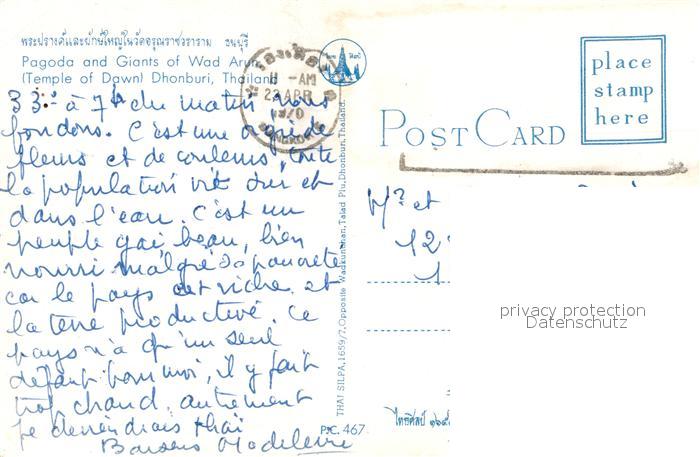 พระปรางค์และยักษ์ใหญ่ในวัดอรุณราชวราราม ธนบุรี
Pagoda and Giants of Wad Arun
(Temple of Dawn) Dhonburi, Thailand
33° à 7h du matin nous
fondons. C'est une orgie de
fleurs et de couleurs, toute
la population vit sur et
dans l'eau. C'est un
peuple gai beau, bien
nourri malgré sa pauvreté
car le pays est riche et
la terre productive. Ce
pays n'a qu'un seul
défaut pour moi, il y fait
trop chaud, autrement
je deviendrais thaï
Baisers Madeleine
11 -AM
22 APR
1970
BANGKOK
THAI SILPA, 1659/7, Opposite Wadkunthan, Talad Plu, Dhonburi, Thailand.
P.C. 467
POST CARD
place
stamp
here
M? et
12
1
privacy protection
Datenschutz
ไทยศิลป์